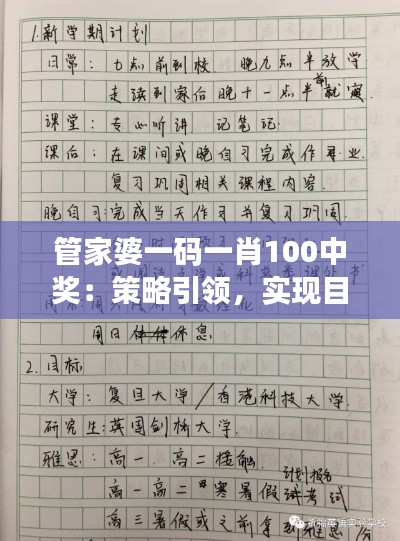 1.新学期计划
日常：七点前到校．晚九点半放学
走读到家后晚十一点半前就寝
课堂：专心听讲 记笔记
课后：在课间或晚自习完成作业
复习巩固相关课程内容．
晚自习:完成当天作习并复习巩固
管家婆一码一肖100中
奖：策略引领，实现目
周日休息
2.目标
大学：复旦大学/香港科技大学.
研究生:英国剑桥大学．
雅思：高一．高二接触
计划报名
高一高二寒暑假试考试
高三暑假或之前拿到雅思
英博实验学校